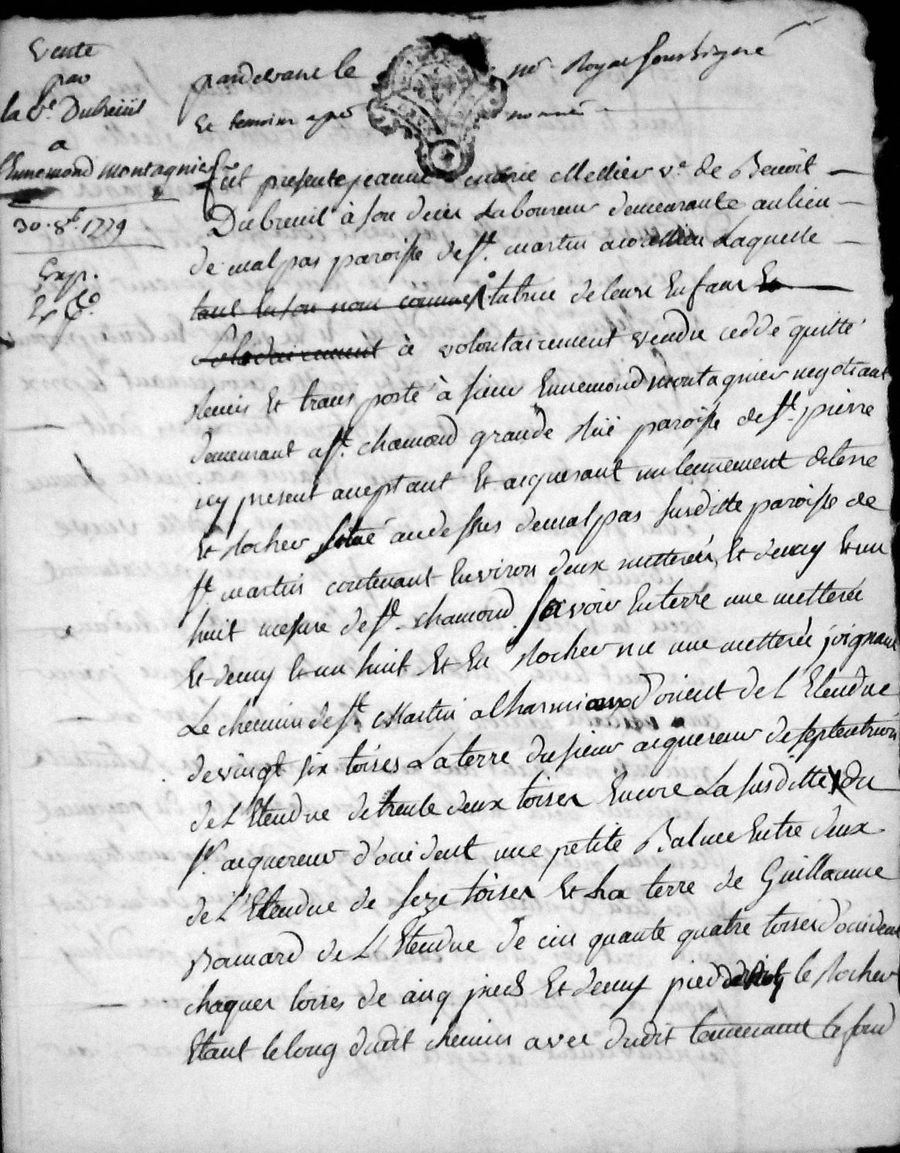 Vente
par
la Ve. Dubreüil
a
Ennemond montagnier
30. 8e. 1779
Exp.
pardevant le no.re Royal soussigné
Et temoins apres nommé
fut presente jeanne marie Mellier ve. de Benoit
Dubreuil à son deces Laboureur demeurante au lieu
de malpas paroisse de st. martin Laquelle
tant en son nom comme tutrice de leurs Enfans Et
à volontairement vendu ceddé quitté
Remis Et transporté à sieur Ennemond montagnier negotiant
demeurant a st. chamond grande Rüe paroisse de st. pierre
icy present acceptant Et acquerant un tennement de terre
Et Rocher situé au dessus de malpas susditte paroisse de
st. martin contenant Environ deux metterée Et demy Et un
huit mesure de st. chamond. sçavoir En terre une metterée
Et demy Et un huit Et En Rocher nu une metterée joignant
Le chemin de st. Martin a d'orient de L'Etendue
de vingt six toises La terre du sieur acquereur de septentrion
de L'Etendue de trente deux toises Encore La susditte du
sr. acquereur d'occident une petite Balme Entre deux
de L'Etendue de seze toises Et La terre de Guillaume
de L'Etendue de cinquante quatre toises d'occident
chaques toises de cinq pieds Et demy pied le Rocher
Etant le long dudit chemin avec dudit tennement le fond